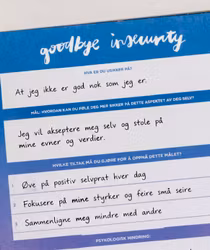 goodbye insecurity
HVA ER DU USIKKER PÅ?
At jeg ikke er god nok som jeg er.
MÅL: HVORDAN KAN DU FØLE DEG MER SIKKER PÅ DETTE ASPEKTET AV DEG SELV?
Jeg vil akseptere meg selv og stole på
mine evner og verdier.
HVILKE TILTAK MÅ DU GJØRE FOR Å OPPNÅ DETTE MÅLET?
1 Øve på positiv selvprat hver dag
2 Fokusere på mine styrker og feire små seire
3 Sammenligne meg mindre med andre
PSYKOLOGISK